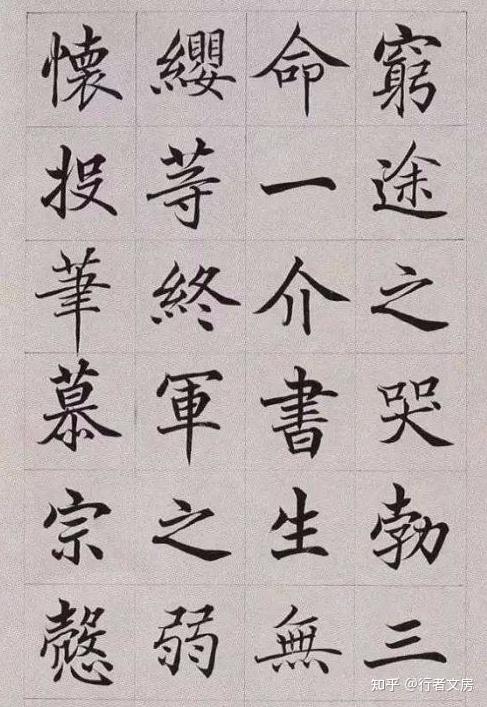 窮途之哭勃三
命一介書生無
纓等終軍之弱
懷投筆慕宗慤
知乎 @行者文房